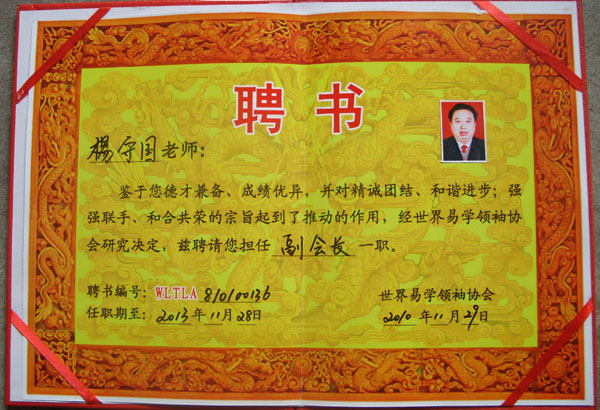 聘书
楊守国老师:
鉴于您德才兼备、成绩优异,并对精诚团结、和谐进步;强
强联手、和合共荣的宗旨起到了推动的作用,经世界易学领袖协
会研究决定,兹聘请您担任副会长一职。
聘书编号:WLTLA 810100136
任职期至:2013年11月28日
世界易学领袖协会
2010年11月29日